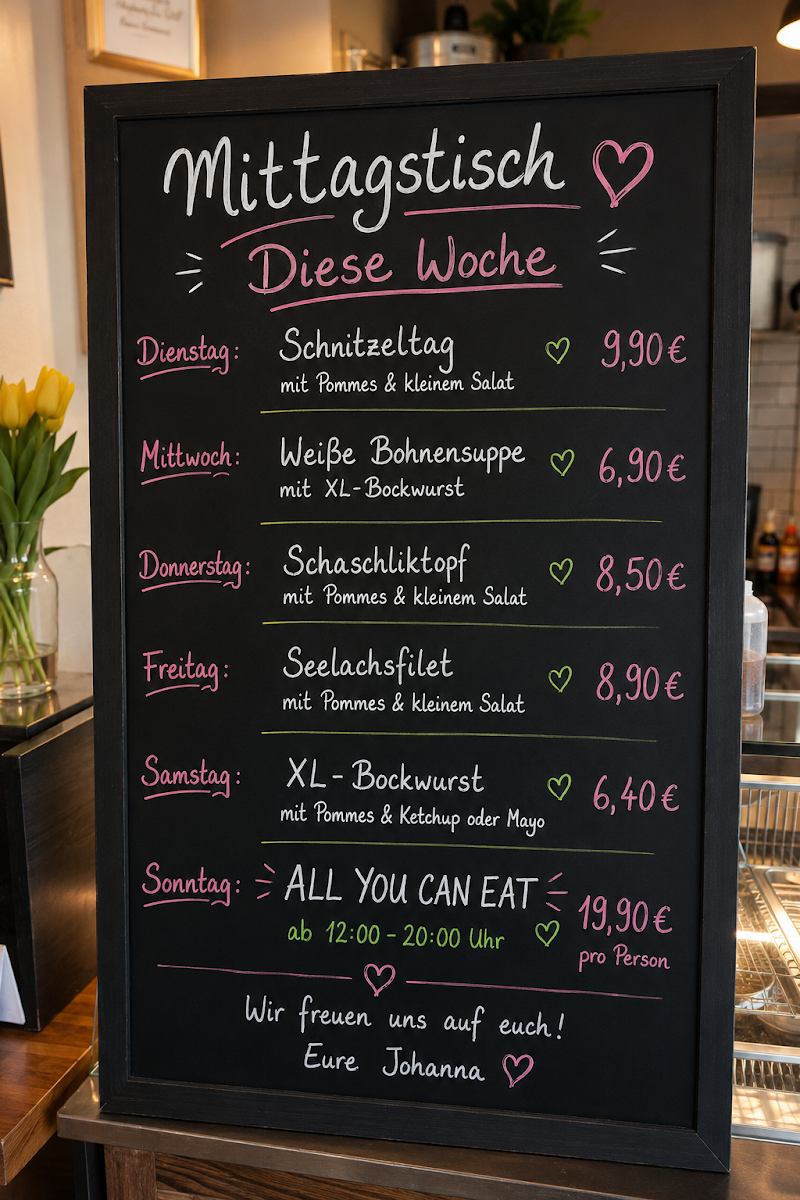 Mittagstisch
Diese Woche
Dienstag: Schnitzeltag 9,90 €
mit Pommes & kleinem Salat
Mittwoch: Weiße Bohnensuppe 6,90 €
mit XL-Bockwurst
Donnerstag: Schaschliktopf 8,50 €
mit Pommes & kleinem Salat
Freitag: Seelachsfilet 8,90 €
mit Pommes & kleinem Salat
Samstag: XL-Bockwurst 6,40 €
mit Pommes & Ketchup oder Mayo
Sonntag: ALL YOU CAN EAT 19,90 €
ab 12:00 - 20:00 Uhr pro Person
Wir freuen uns auf euch!
Eure Johanna